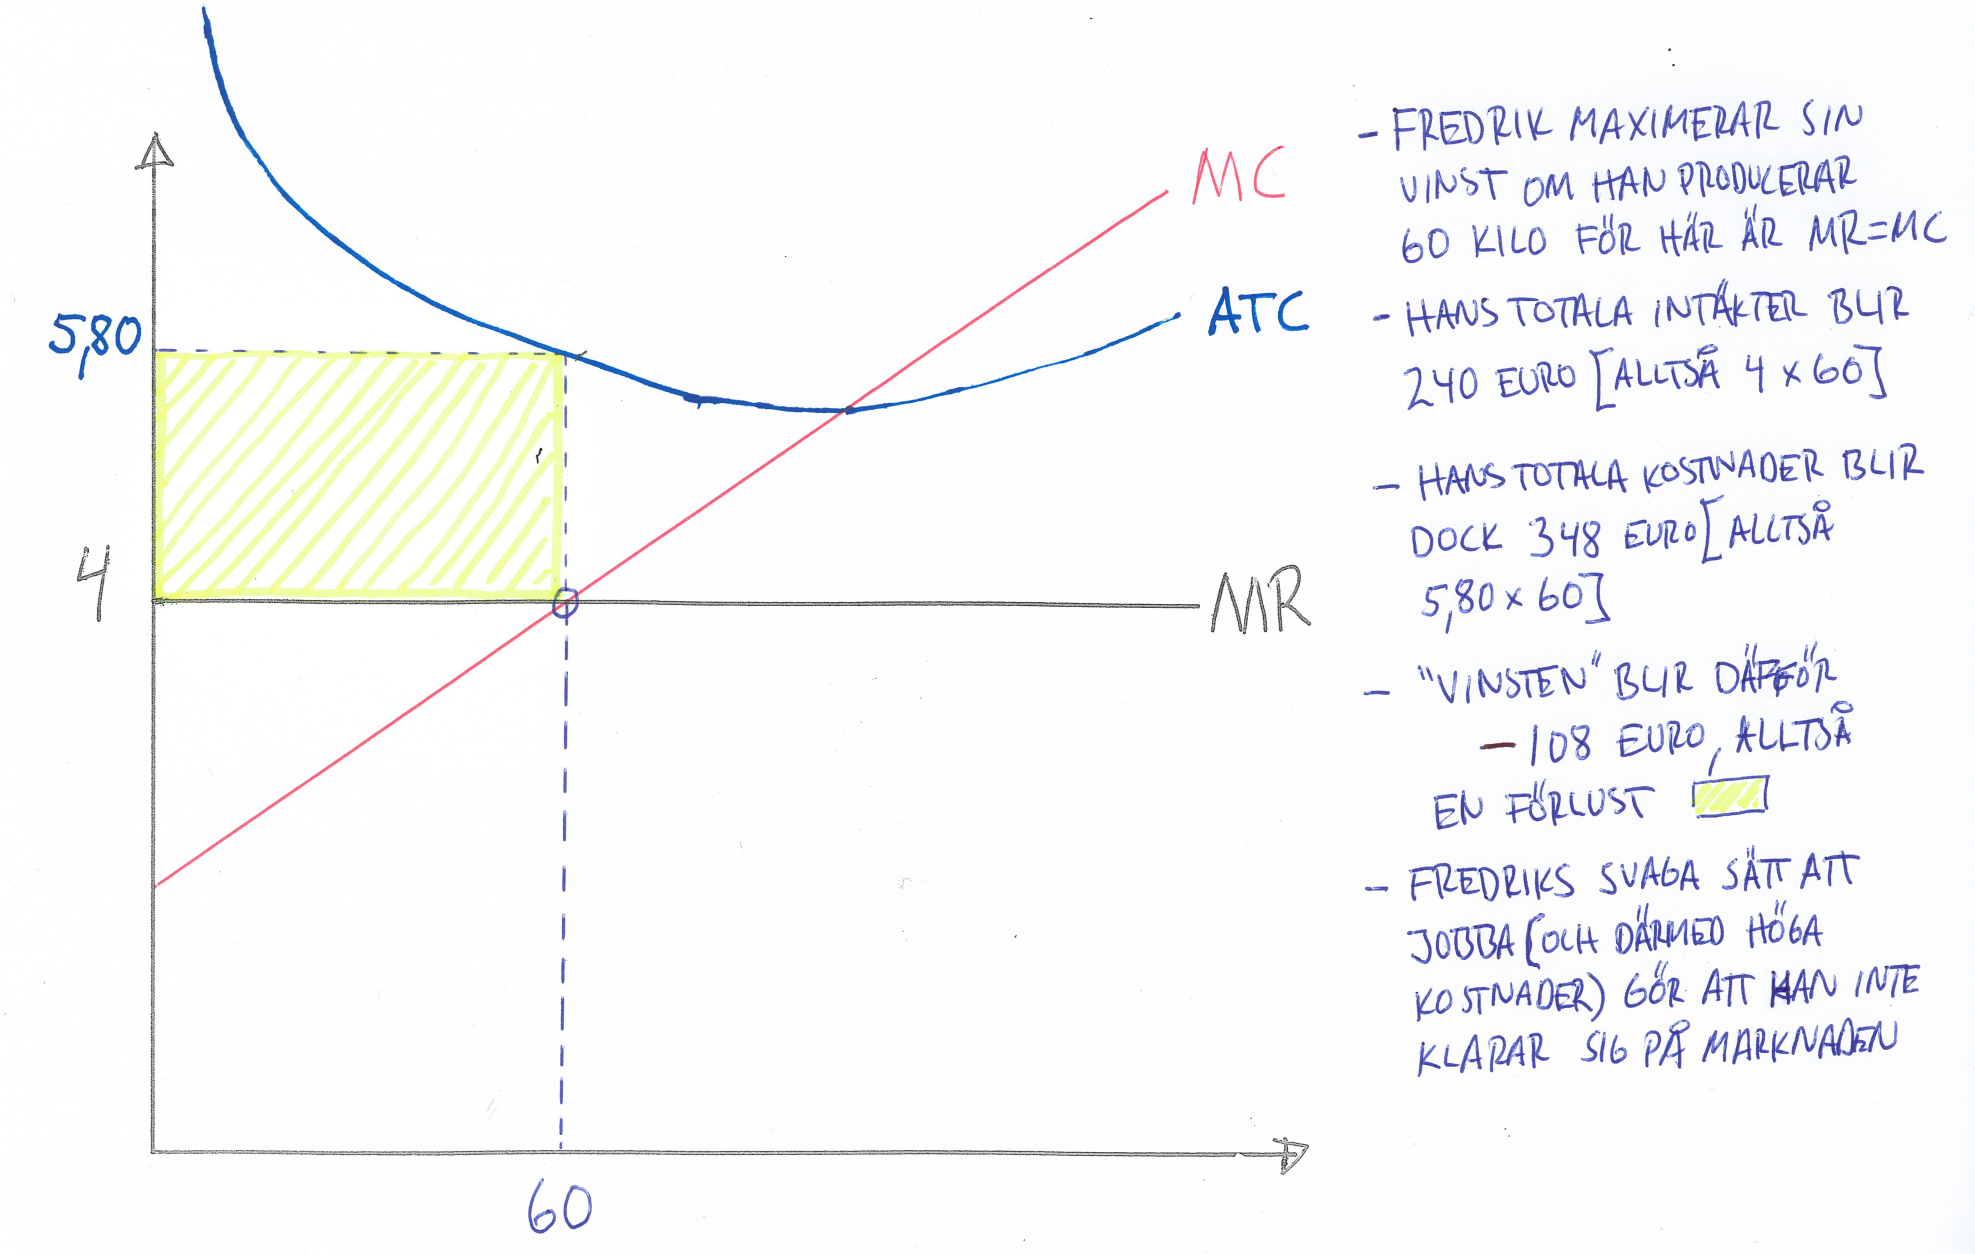 MC
ATC
5,80
4
MR
60
- FREDRIK MAXIMERAR SIN
VINST OM HAN PRODUCERAR
60 KILO FÖR HÄR ÄR MR=MC
- HANS TOTALA INTÄKTER BLIR
240 EURO [ALLTSÅ 4 x 60]
- HANS TOTALA KOSTNADER BLIR
DOCK 348 EURO [ALLTSÅ
5,80 x 60]
- "VINSTEN" BLIR DÄRFÖR
-108 EURO, ALLTSÅ
EN FÖRLUST
- FREDRIKS SVAGA SÄTT ATT
JOBBA (OCH DÄRMED HÖGA
KOSTNADER) GÖR ATT HAN INTE
KLARAR SIG PÅ MARKNADEN